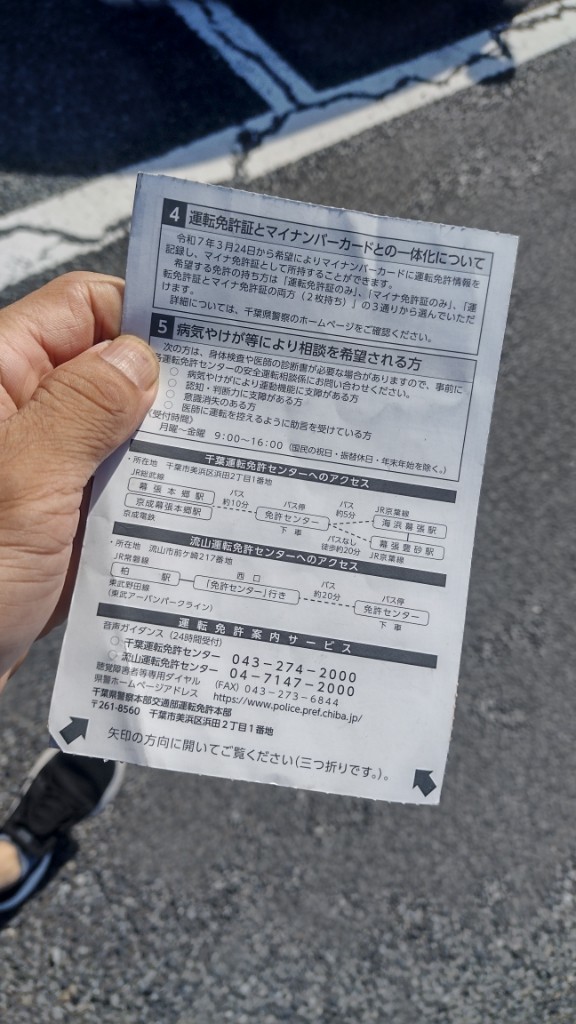 4 運転免許証とマイナンバーカードとの一体化について
令和7年3月24日から希望によりマイナンバーカードに運転免許情報を
記録し、マイナ免許証として所持することができます。
希望する免許の持ち方は「運転免許証のみ」、「マイナ免許証のみ」、「運
転免許証とマイナ免許証の両方(2枚持ち)」の3通りから選んでいただ
けます。
詳細については、千葉県警察のホームページをご確認ください。
5 病気やけが等により相談を希望される方
次の方は、身体検査や医師の診断書が必要な場合がありますので、事前に
各運転免許センターの安全運転相談係にお問い合わせください。
○ 病気やけがにより運動機能に支障がある方
○ 認知・判断力に支障がある方
○ 意識消失のある方
○ 医師に運転を控えるように助言を受けている方
《受付時間》
月曜~金曜 9:00~16:00(国民の祝日・振替休日・年末年始を除く。)
千葉運転免許センターへのアクセス
・所在地 千葉市美浜区浜田2丁目1番地
JR総武線 バス バス停 バス JR京葉線
幕張本郷駅 約10分 約5分 海浜幕張駅
京成幕張本郷駅 免許センター 幕張豊砂駅
京成電鉄 下車 バスなし 徒歩約20分 JR京葉線
流山運転免許センターへのアクセス
・所在地 流山市前ケ崎217番地
JR常磐線 西口 バス バス停
柏駅 「免許センター」行き 約20分 免許センター
東武野田線 下車
(東武アーバンパークライン)
運転免許案内サービス
音声ガイダンス(24時間受付)
○ 千葉運転免許センター 043-274-2000
○ 流山運転免許センター 04-7147-2000
聴覚障害者等専用ダイヤル (FAX) 043-273-6844
県警ホームページアドレス https://www.police.pref.chiba.jp/
千葉県警察本部交通部運転免許本部
〒261-8560 千葉市美浜区浜田2丁目1番地
矢印の方向に開いてご覧ください(三つ折りです。)。